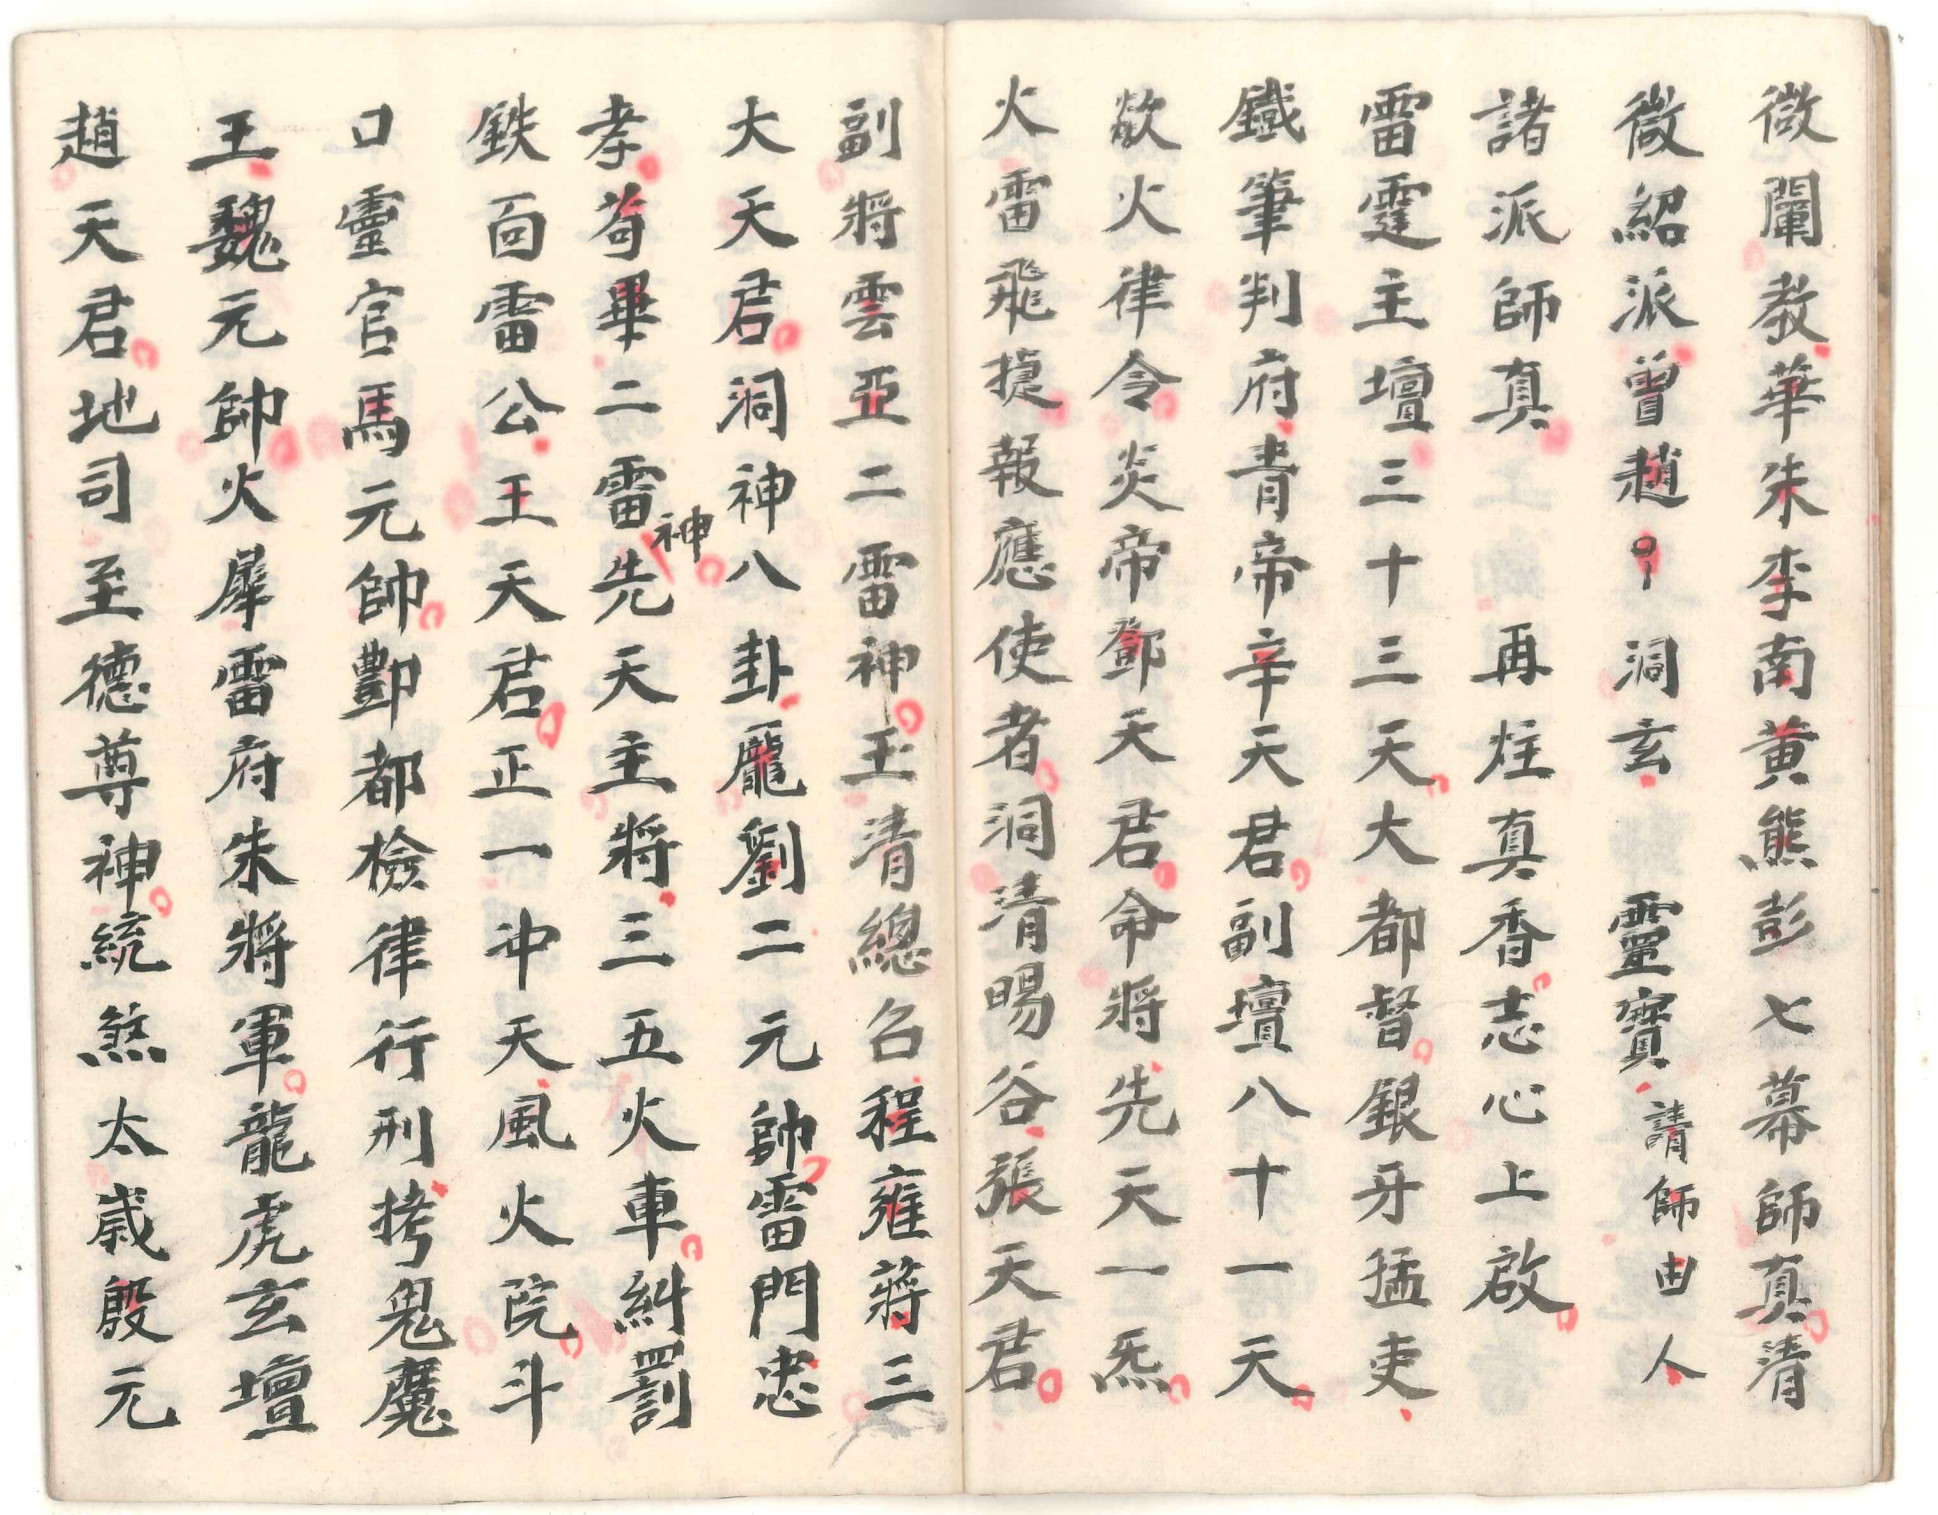 微闡教華朱李南黄熊彭七幕師真清
微紹派曾趙 洞玄 靈寳 請師由人
諸派師真 再炷真香志心上啟
雷霆主壇三十三天大都督銀牙猛吏
鐵筆判府青帝辛天君副壇八十一天
歘火律令炎帝鄧天君命將先天一炁
火雷飛捷報應使者洞清暘谷張天君
副將雲亞二雷神王清總召程雍蔣三
大天君洞神八卦龐劉二元帥雷門忠
孝茍畢二雷神先天主將三五火車糾罰
鉄面雷公王天君正一冲天風火院斗
口靈官馬元帥酆都檢律行刑拷鬼魔
王魏元帥火犀雷府朱將軍龍虎玄壇
趙天君地司至德尊神統煞太歲殷元